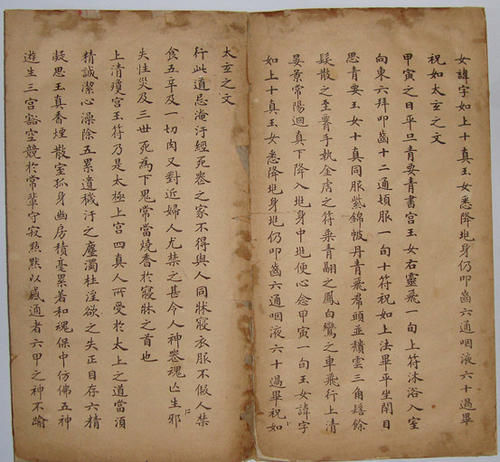 女諱字如上十真玉女悉降兆身仍叩齒六通咽液六十過畢
祝如太玄之文
甲寅之日平旦青要青書宮玉女右靈飛一旬上符沐浴入室
向東六拜叩齒十二通頓服一旬十符祝如上法畢平坐閉目
思青要玉女十真同服紫錦帔丹青飛帬頭並積雲三角髻餘
髮散之至要手執金虎之符乘青翮之鳳白鸞之車飛行上清
晏景常陽迴真下降入兆身中兆便心念甲寅一旬玉女諱字
如上十真玉女悉降兆身兆仍叩齒六通咽液六十過畢祝如
太玄之文
行此道忌淹汙經死喪之家不得與人同牀寢衣服不假人禁
食五辛及一切肉又對近婦人尤禁之甚令人神喪魂亡生邪
失性災及三世死為下鬼常當燒香於寢牀之首也
上清瓊宮玉符乃是太極上宮四真人所受於太上之道當須
精誠潔心澡除五累遺穢汙之塵濁杜淫欲之失正目存六精
凝思玉真香煙散室孤身幽房積毫累著和魂保中仿佛五神
遊生三宮豁空競於常輩守寂默默以感通者六甲之神不踰